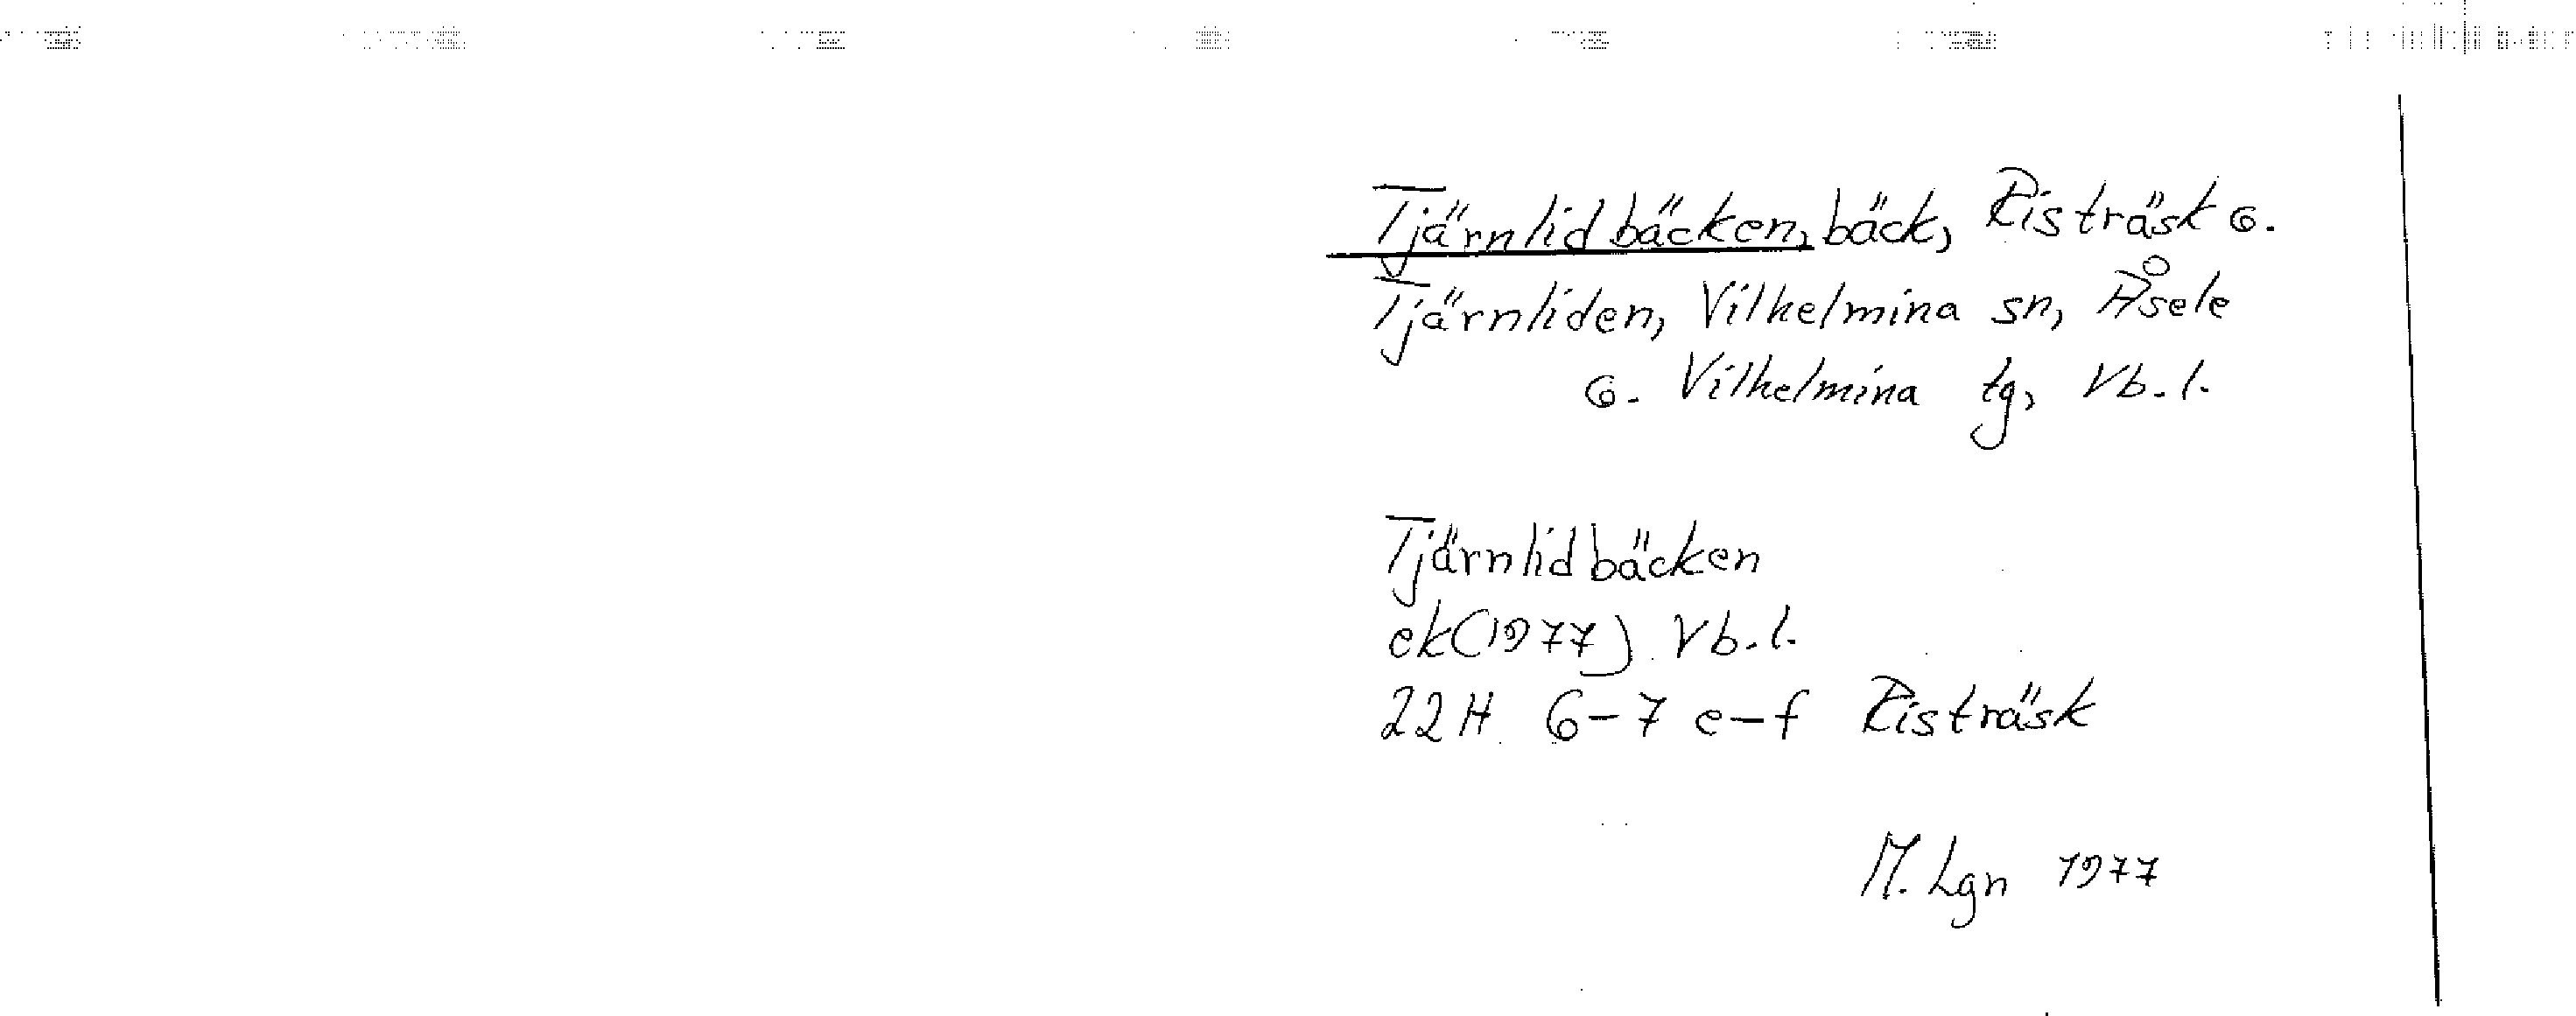 Tjärnlidbäcken, bäck, Risträsk o.
Tjärnliden, Vilhelmina sn, Åsele
o. Vilhelmina tg, Vb.l.
Tjärnlidbäcken
ek(1977) Vb.l.
22H 6-7 e-f Risträsk
M. Lgn 1977